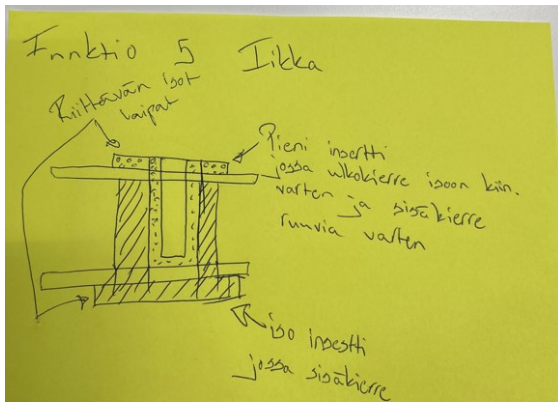 Funktio 5 Iikka
Riittävän isot
laipat
Pieni insertti
jossa ulkokierre isoon kiin.
varten ja sisäkierre
ruuvia varten
iso insertti
jossa sisäkierre